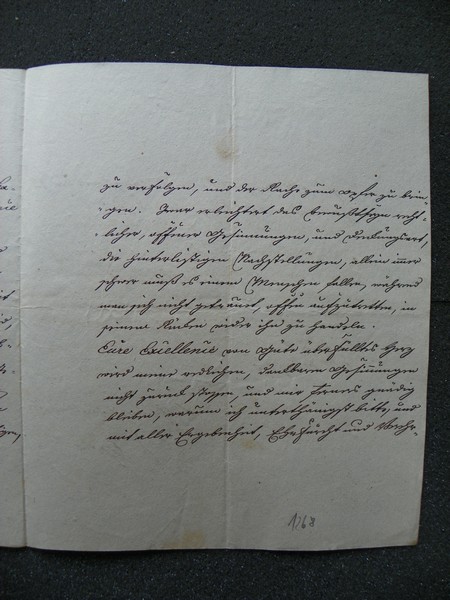 zu verfolgen, und der Rache zum Opfer zu brin-
gen. Zwar erleichtert das Bewußtseyn recht-
licher, offener Gesinnungen, und Denkungsart,
die hinterlistigen Nachstellungen, allein immer
schwer muß es einem Menschen fallen, während
man sich nicht getrauet, offen aufzutretten, in
seinem Rücken wider ihn zu handeln.
Eure Excellenz von Güte überfülltes Herz
wird meine redlichen, dankbaren Gesinnungen
nicht zurück stossen, und mir ferners gnädig
bleiben, warum ich unterthänigst bitte, und
mit aller Ergebenheit, Ehrfurcht und Vereh-
1768